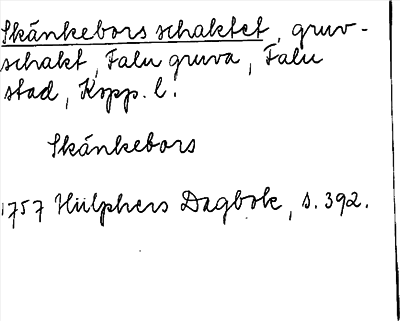 Skänkebors schaktet, gruv-
schakt, Falu gruva, Falu
stad, Kopp. l.
Skänkebors
1757 Hülphers Dagbok, s. 392.